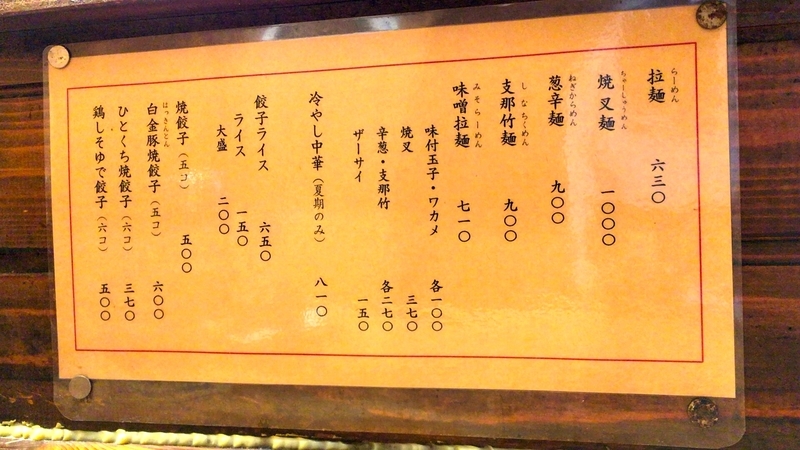 らーめん
拉麺 六三〇
ちゃーしゅうめん
焼叉麺 一〇〇〇
ねぎからめん
葱辛麺 九〇〇
しなちくめん
支那竹麺 九〇〇
みそらーめん
味噌拉麺 七一〇
味付玉子・ワカメ 各一〇〇
焼叉 三七〇
辛葱・支那竹 各二七〇
ザーサイ 一五〇
冷やし中華（夏期のみ） 八一〇
餃子ライス 六五〇
ライス 一五〇
大盛 二〇〇
焼餃子（五コ） 五〇〇
はっきんとん
白金豚焼餃子（五コ） 六〇〇
ひとくち焼餃子（六コ） 三七〇
鶏しそゆで餃子（六コ） 五〇〇